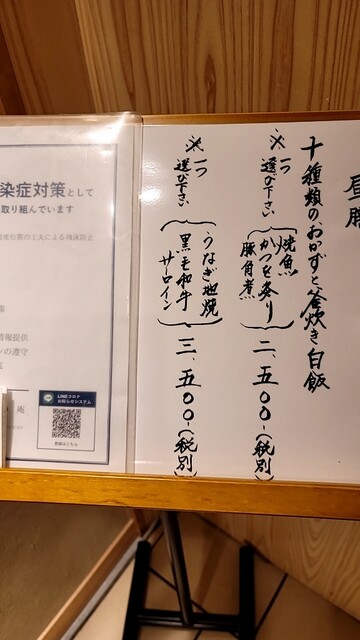 昼膳
十種類のおかずと釜炊き白飯
※一つ選び下さい
焼魚
かつを炙り
豚角煮
二、五〇〇-(税別)
※一つ選び下さい
うなぎ地焼
黒毛和牛
サーロイン
三、五〇〇-(税別)
染症対策として
取り組んでいます
情報提供
ンの遵守
庵
LINEコロナ
お知らせシステム